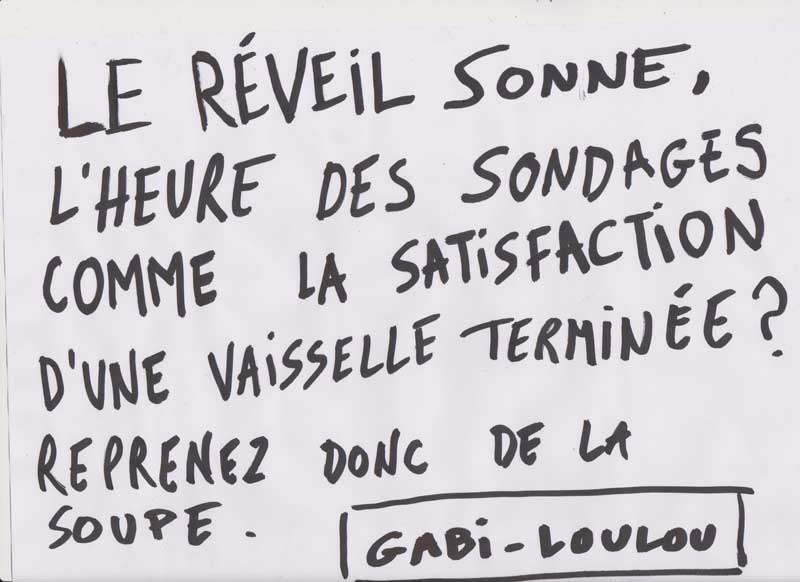 LE RÉVEIL SONNE,
L'HEURE DES SONDAGES
COMME LA SATISFACTION
D'UNE VAISSELLE TERMINÉE?
REPRENEZ DONC DE LA
SOUPE.
GABI-LOULOU